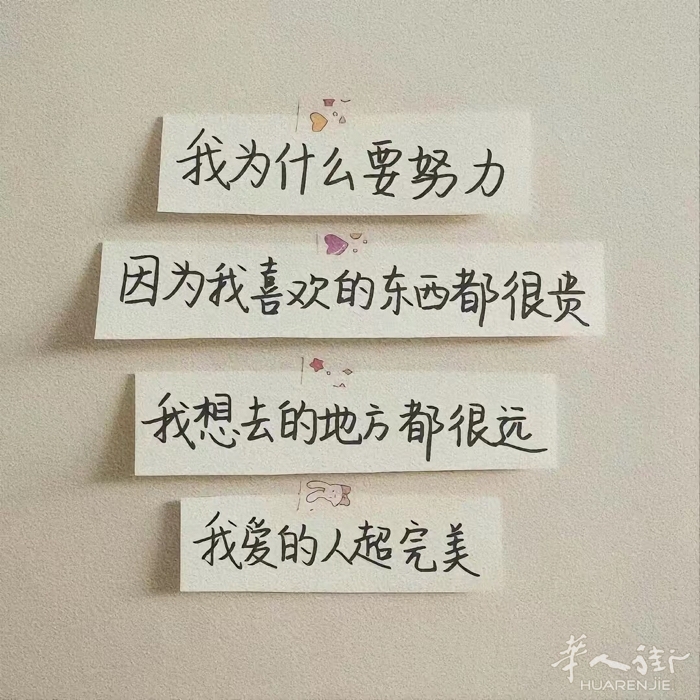 我为什么要努力
因为我喜欢的东西都很贵
我想去的地方都很远
我爱的人超完美
華人街
HUARENJIE